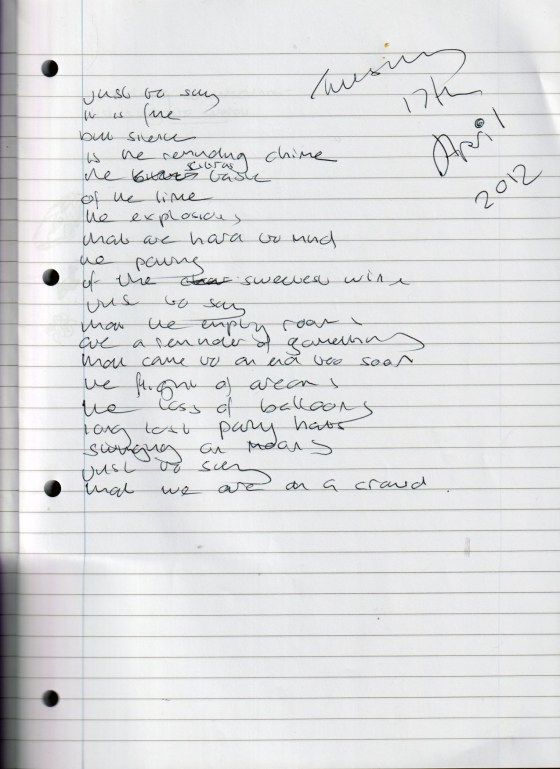 Tuesday
17th
April
2012
just to say
it is fine
but silence
is the reminding chime
the citrus taste
of the lime
the explosions
that are hard to find
the pouring
of the sweetest wine
just to say
that the empty rooms
are a reminder of
that came to an end too soon
the flight of
the loss of balloons
long lost party hats
just to say
that we are in a crowd.